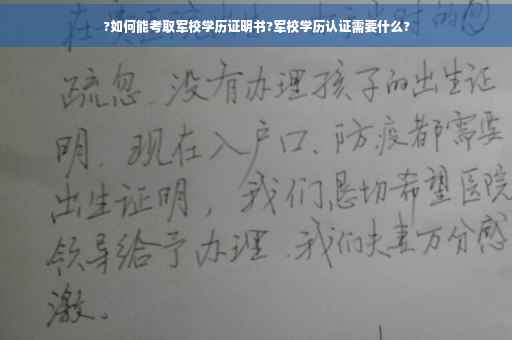 ?如何能考取军校学历证明书?军校学历认证需要什么?
疏忽、没有办理孩子的出生证
明、现在入户口、防疫都需要
出生证明，我们恳切希望医院
领导给予办理、我们夫妻万分感
激。